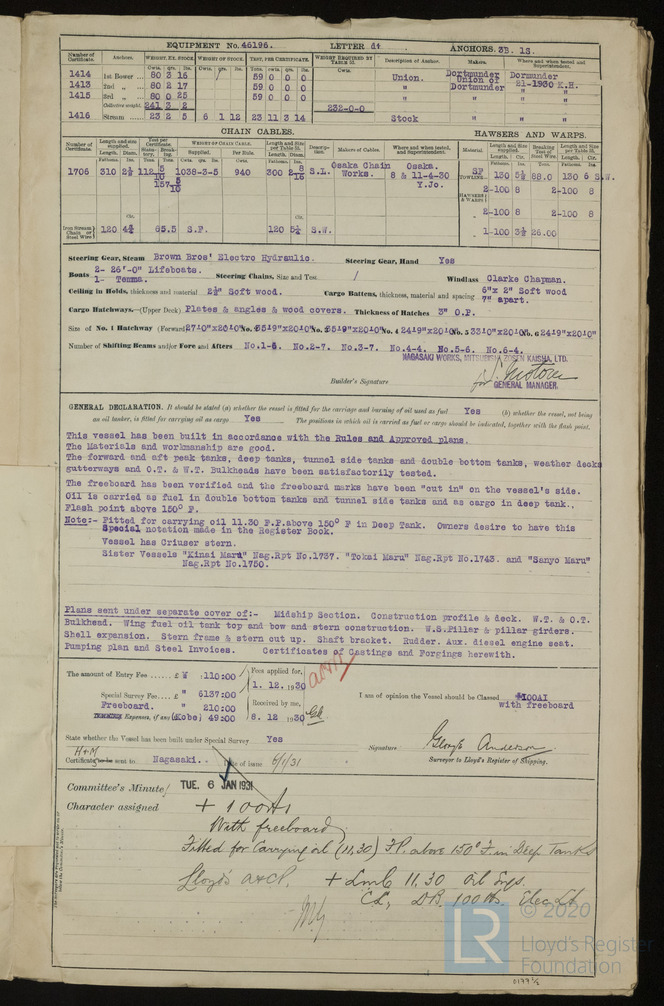 EQUIPMENT No. 46196. LETTER d† ANCHORS. 3B. 1S.
Number of Certificate. Anchors. WEIGHT, EX. STOCK. WEIGHT OF STOCK. TEST, PER CERTIFICATE. WEIGHT REQUIRED BY TABLE 31. Description of Anchor. Makers. Where and when tested and Superintendent.
1414 1st Bower 80 3 16 59 0 0 0 Union. Dortmunder Union of Dortmunder Dormunder 21-1930 K.H.
1413 2nd " 80 2 17 59 0 0 0 " " "
1415 3rd " 80 0 25 59 0 0 0 " " "
Collective weight. 241 3 2 232-0-0
1416 Stream 23 2 5 6 1 12 23 11 3 14 Stock " "
CHAIN CABLES. HAWSERS AND WARPS.
1706 310 2½ 112 5/10 157 5/10 1038-3-5 940 300 2 8/16 S.L. Osaka Chain Works. Osaka. 8 & 11-4-30 Y.Jo.
TOWLING 130 5½ 88.0 130 6 S.W.
HAWSERS & WARPS 2-100 8 2-100 8
" 2-100 8 2-100 8
" 1-100 3½ 26.00
Iron Stream Chain or Steel Wire 120 4¾ 65.5 S.F. 120 5¼ S.W.
Steering Gear, Steam Brown Bros' Electro Hydraulic. Steering Gear, Hand Yes
Boats 2- 26'-0" Lifeboats. 1- Temma. Steering Chains, Size and Test / Windlass Clarke Chapman.
Ceiling in Holds, thickness and material 2½" Soft wood. Cargo Battens, thickness, material and spacing 6"x 2" Soft wood 7" apart.
Cargo Hatchways.—(Upper Deck) Plates & angles & wood covers. Thickness of Hatches 3" O.P.
Size of No. 1 Hatchway (Forward) 27'10"x20'10" No. 2 19"x20'10" No. 3 19"x20'10" No. 4 24'9"x20'10" No. 5 33'10"x20'10" No. 6 24'9"x20'10"
Number of Shifting Beams and/or Fore and Afters No.1-6. No.2-7. No.3-7. No.4-4. No.5-6. No.6-4.
NAGASAKI WORKS, MITSUBISHI ZOSEN KAISHA, LTD.
Builder's Signature for GENERAL MANAGER.
GENERAL DECLARATION. It should be stated (a) whether the vessel is fitted for the carriage and burning of oil used as fuel Yes (b) whether the vessel, not being
an oil tanker, is fitted for carrying oil as cargo Yes The positions in which oil is carried as fuel or cargo should be indicated, together with the flash point.
This vessel has been built in accordance with the Rules and Approved plans.
The Materials and workmanship are good.
The forward and aft peak tanks, deep tanks, tunnel side tanks and double bottom tanks, weather decks
gutterways and O.T. & W.T. Bulkheads have been satisfactorily tested.
The freeboard has been verified and the freeboard marks have been "cut in" on the vessel's side.
Oil is carried as fuel in double bottom tanks and tunnel side tanks and as cargo in deep tank.,
Flash point above 150° F.
Note:- Fitted for carrying oil 11.30 F.P.above 150° F in Deep Tank. Owners desire to have this
Special notation made in the Register Book.
Vessel has Criuser stern.
Sister Vessels "Kinai Maru" Nag.Rpt No.1737. "Tokai Maru" Nag.Rpt No.1743. and "Sanyo Maru"
Nag.Rpt No.1750.
Plans sent under separate cover of:- Midship Section. Construction profile & deck. W.T. & O.T.
Bulkhead. Wing fuel oil tank top and bow and stern construction. W.S.Pillar & pillar girders.
Shell expansion. Stern frame & stern cut up. Shaft bracket. Rudder. Aux. diesel engine seat.
Pumping plan and Steel Invoices. Certificates of Castings and Forgings herewith.
The amount of Entry Fee ..... £ ¥ 110:00 Fees applied for,
Special Survey Fee.... £ " 6137:00 1. 12. 1930
Freeboard. " 210:00 Received by me,
Expenses, if any (Kobe) 49:00 8. 12. 1930
I am of opinion the Vessel should be Classed +100A1
with freeboard
State whether the Vessel has been built under Special Survey Yes
H+M
Certificate to be sent to Nagasaki.. Date of issue 6/1/31
Signature George Anderson
Surveyor to Lloyd's Register of Shipping.
Committee's Minute TUE. 6 JAN 1931
Character assigned + 100A1
With freeboard
Fitted for Carrying oil (11,30) F.P. above 150° F. in Deep Tanks
Lloyd's A&CP. + LMC 11,30 Oil Engs.
CL, DB. 100 lb. Elec Lt
© 2020
LR
Lloyd's Register
Foundation